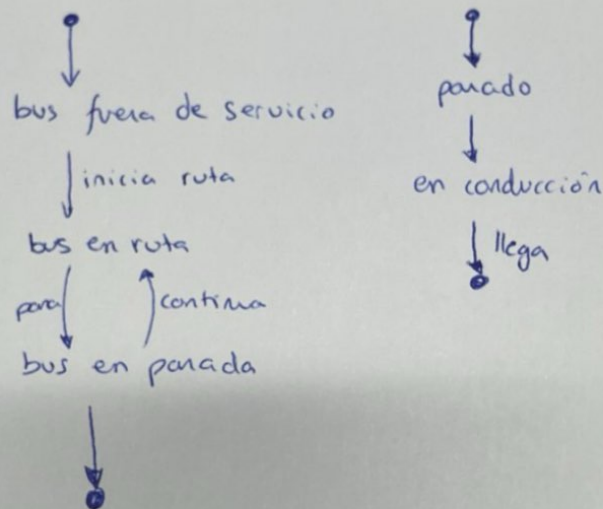 bus fuera de servicio
inicia ruta
bus en ruta
para
continua
bus en parada
parado
en conducción
llega